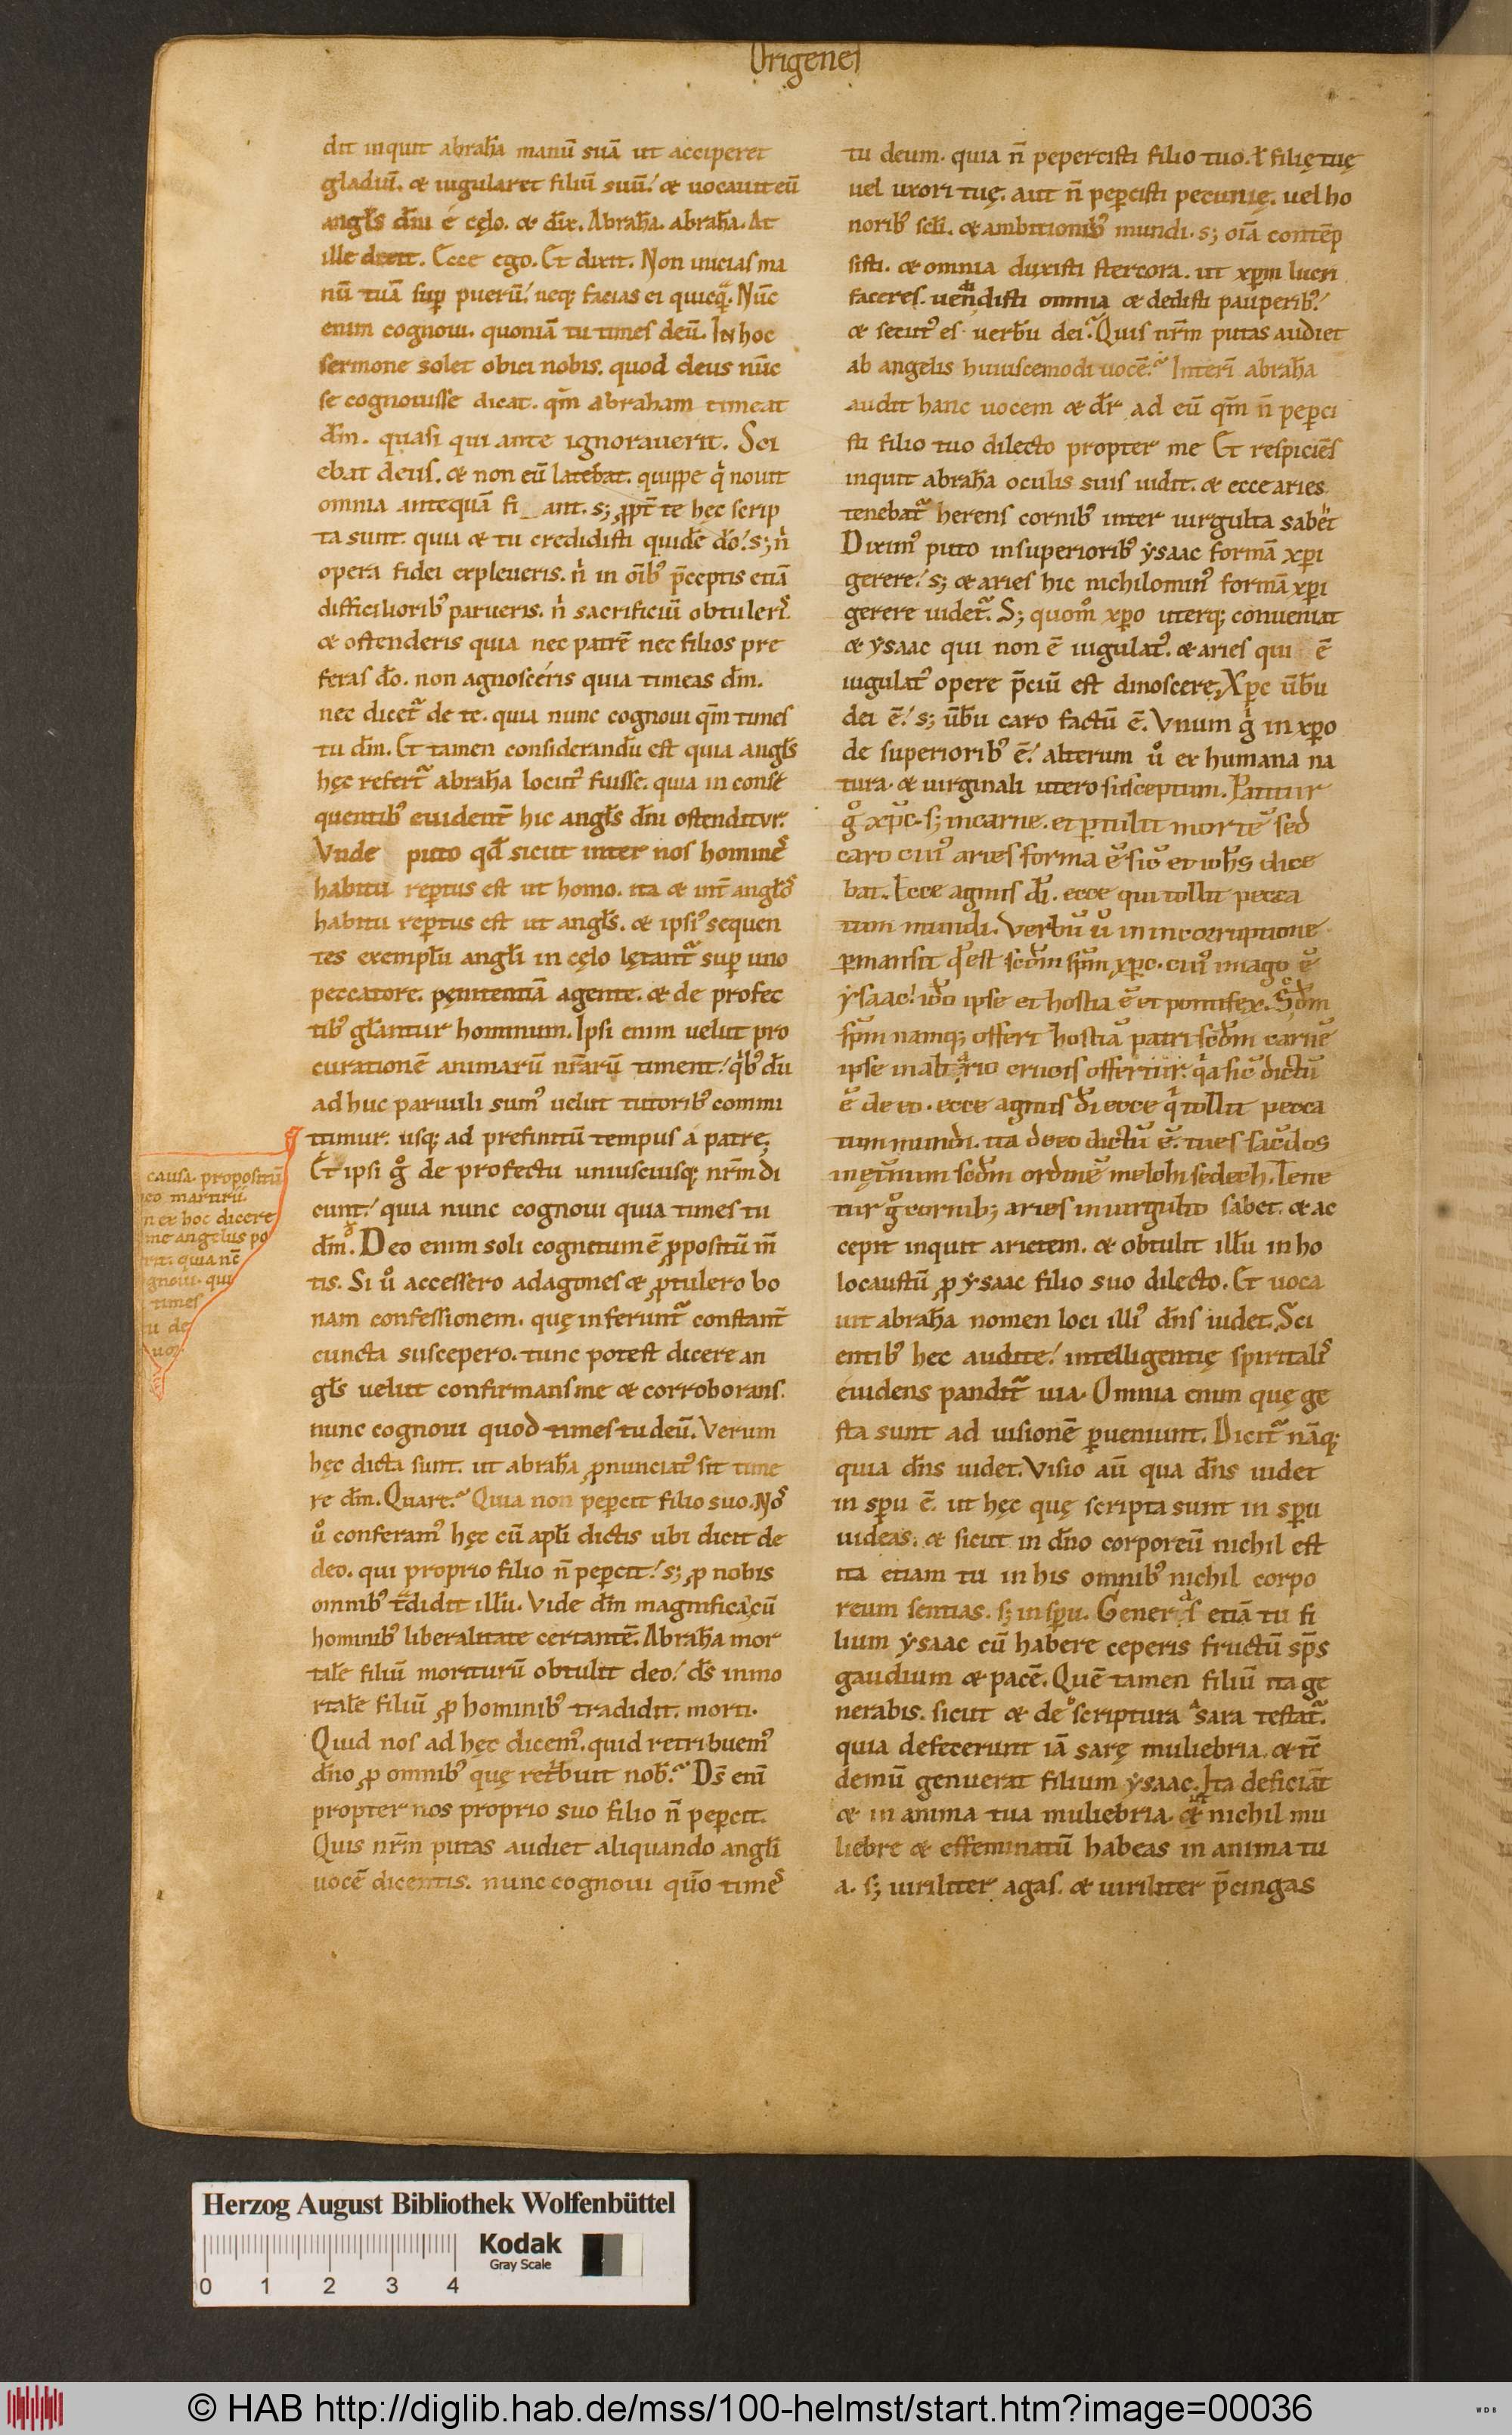 Origenes
dit inquit abrahā manū suā ut acciperet
gladiū. & iugularet filiū suū. & uocauit eū
angl̄s dn̄i é cęlo. & dix̄. Abrahā. abrahā. At
ille dixit. Ecce ego. Et dixit. Non iniicias ma
nū tuā sup puerū. neq; facias ei quicq̄. Nūc
enim cognoui. quoniā tu times deū. In hoc
sermone solet obici nobis. quod deus nūc
se cognouisse dicat. qm̄ abraham timeat
dm̄. quasi qui ante ignorauerit. Sci
ebat deus. & non eū latebat. quippe q̍ nouit
omnia antequā fi ant. s; ꝓpt̄ te hęc scrip
ta sunt. quia & tu credidisti quidē dō. s; n̍
opera fidei expleueris. n̍ in oīb; p̄ceptis etiā
difficiliorib; parueris. n̍ sacrificiū obtuleris
& ostenderis quia nec patrē nec filios pre
feras dō. non agnosceris quia timeas dm̄.
nec dicet̄ de te. quia nunc cognoui qm̄ times
tu dm̄. Et tamen considerandū est quia angl̄s
hęc refert̄ abrahā locut᷒ fuisse. quia in conse
quentib; euident̄ hic angl̄s dn̄i ostenditur.
Vnde puto qd̄ sicut inter nos homines
habitu reꝑtus est ut homo. ita & int̄ angl̄os
habitu reꝑtus est ut angl̄s. & ipsi᷒ sequen
tes exemplū angl̄i in cęlo lętant̄ sup uno
peccatore. pęnitentiā agente. & de profec
tib; gl̄antur hominum. Ipsi enim uelut pro
curationē animarū nr̄arū timent. q̍b; dū
ad huc paruuli sum᷒ uelut tutorib; commi
timur. usq; ad prefinitū tempus a patre.
Et ipsi g̊ de profectu uniuscuiusq; nr̄m di
cunt. quia nunc cognoui quia times tu
dm̄. Deo enim soli cognitum ē ꝓpositū m̄
tis. Si ů accessero ad agones & ꝓtulero bo
nam confessionem. quę inferunt̄ constant̄
cuncta suscepero. tunc potest dicere an
gl̄s uelut confirmans me & corroborans.
nunc cognoui quod times tu deū. Verum
hęc dicta sunt. ut abrahā ꝓnunciat᷒ sit time
re dm̄. Quare. Quia non peꝑcit filio suo. Nos
ů conferam᷒ hęc cū apl̄i dictis ubi dicit de
deo. qui proprio filio n̄ peꝑcit. s; ꝓ nobis
omnib; t̄didit illū. Vide dm̄ magnifica cū
hominib; liberalitate certantē. Abrahā mor
talē filiū moriturū obtulit deo. ds̄ inmo
rtalē filiū ꝓ hominib; tradidit. morti.
Quid nos ad hęc dicem᷒. quid retribuem᷒
dn̄o ꝓ omnib; quę ret̍buit nob̄. Ds̄ eni̅
propter nos proprio suo filio n̄ peꝑcit.
Quis nr̄m putas audiet aliquando angl̄i
uocē dicentis. nunc cognoui qm̄o times
causa. propositū
martirii.
ex hoc dicere
me angelus po
quia nc̄
gnoui. qui
times
u de
uo
tu deum. quia n̄ pepercisti filio tuo. ł filię tuę
uel uxori tuę. aut n̄ peꝑcisti pecunię. uel ho
norib; scl̄i. & ambitionib; mundi. s; oīa contēp
sisti. & omnia duxisti stercora. ut xp̄m lucri
faceres. uendisti omnia & dedisti pauperib;
& secut᷒ es uerbū dei. Quis nr̄m putas audiet
ab angelis huiuscemodi uocē. Interī abrahā
audit hanc uocem & dr̄ ad eū qm̄ n̄ peꝑci
sti filio tuo dilecto propter me Et respiciēs
inquit abrahā oculis suis uidit. & ecce aries
tenebat̄ herens cornib; inter uirgulta sabet
Dixim᷒ puto in superiorib; ẏsaac formā xp̄i
gerere. s; & aries hic nichilomin᷒ formā xp̄i
gerere uidet̄. S; quom̊ xp̄o uterq; conueniat
& ẏsaac qui non ē iugulat᷒. & aries qui ē
iugulat᷒ opere p̄ciū est dinoscere. Xp̄c ūbū
dei ē. s; ūbū caro factū ē. Vnum g̊ in xp̄o
de superiorib; ē. alterum ů ex humana na
tura. & uirginali utero susceptum. Patitur
g̊ xp̄c. s; in carne. et ꝑtulit mortē sed
caro cui᷒ aries forma ē sic̄ et ioh̄s dice
bat. Ecce agnus dī. ecce qui tollit pecca
tum mundi. Verbū ů in incorruptione
ꝑmansit qd̄ est scdm̄ spm̄ xp̄c. cui᷒ imago ē
ẏsaac. iđo ipse et hostia ē et pontifex. Scdm̄
spm̄ namq; offert hostiā patri scdm̄ carnē
ipse in altario crucis offertur. q̍a sic̄ dictū
ē de eo. ecce agnus dī ecce q̍ tollit pecca
tum mundi. ita de eo dictū ē. tu es sac̄dos
in ęt̄num scdm̄ ordinē melchisedech. Tene
tur g̊ cornib; aries in uirgulto sabec. & ac
cepit inquit arietem. & obtulit illū in ho
locaustū ꝓ ẏsaac filio suo dilecto. Et uoca
uit abrahā nomen loci illi᷒ dn̄s uidet. Sci
entib; hec audite. intelligentię spiritalis
euidens pandit̄ uia. Omnia enim quę ge
sta sunt ad uisionē ꝑueniunt. Dicit̄ nāq;
quia dn̄s uidet. Visio aū qua dn̄s uidet
in spū ē. ut hęc quę scripta sunt in spū
uideas. & sicut in dn̄o corporeū nichil est
ita etiam tu in his omnib; nichil corpo
reum sentias. s; in spū. Generas etiā tu fi
lium ẏsaac cū habere ceperis fructū sp̄s
gaudium & pacē. Quē tamen filiū ita ge
nerabis. sicut & de scriptura sara testat̄.
quia defecerunt iā sarę muliebria. & tc̄
demū genuerat filium ẏsaac. Ita deficiāt
& in anima tua muliebria. & nichil mu
liebre & effeminatū habeas in anima tu
a. s; uiriliter agas. & uiriliter p̄cingas
Herzog August Bibliothek Wolfenbüttel
0 1 2 3 4
Kodak
Gray Scale
© HAB http://diglib.hab.de/mss/100-helmst/start.htm?image=00036
WDB